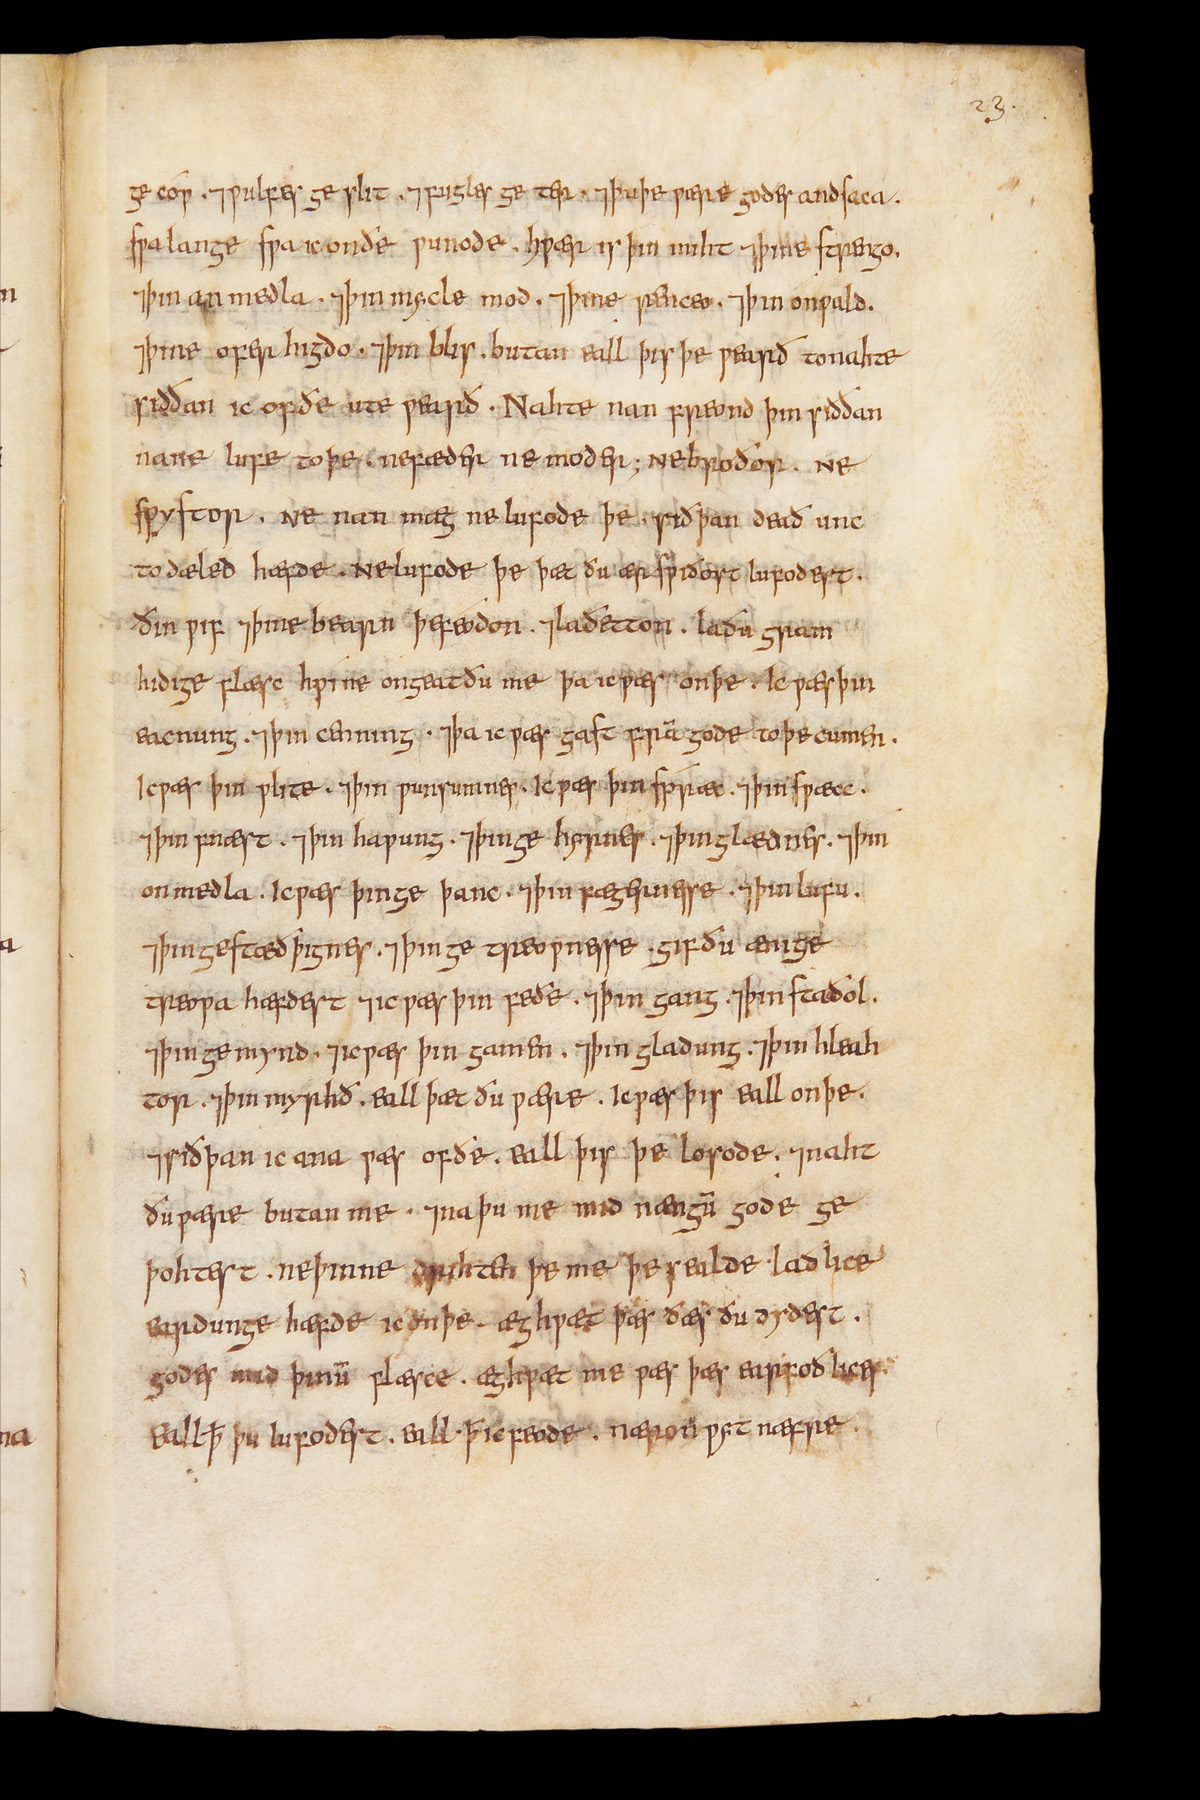 23.
ge ceóƿ . ⁊ ƿulfes ge slit . ⁊ fugles ge ter . ⁊ þu þe ƿære godes andsaca .
sƿa lange sƿa ic on ðe ƿunode . hƿær is þin miht ⁊ þine strengo .
⁊ þin an medla . ⁊ þin mycle mod . ⁊ þine rencew . ⁊ þin onƿald .
⁊ þine ofer higdo . ⁊ þin blis . butan eall þis þe ƿearð to nahte
siððan ic of ðe ute ƿearð . Nahte nan freond þin siððan
nane lufe to þe . ne fæder ne moder ; Ne broðor . Ne
sƿystor . Ne nan mæg ne lufode þe . sið þan deað unc
to dæled hæfde . Ne lufode þe þæt ðu ær sƿiðost lufodest .
ðin ƿif ⁊ þine bearn þe feodon . ⁊ laðetton . la ðu gram
hidige flæsc hƿi ne ongeat ðu me þa ic ƿæs on þe . Ic ƿæs þin
eacnung . ⁊ þin cenning . ⁊ þa ic ƿæs gast frā gode to þe cumen .
Ic ƿæs þin ƿlite . ⁊ þin ƿunsumnes . Ic ƿæs þin sƿræc . ⁊ þin sƿæcc .
⁊ þin fnæst . ⁊ þin haƿung . ⁊ þin ge hyrnes . ⁊ þin glædnes . ⁊ þin
on medla . Ic ƿæs þin ge þanc . ⁊ þin fægernesse . ⁊ þin lufu .
⁊ þin gestæðþignes . ⁊ þin ge treoƿnesse . gif ðu ænige
treoƿa hæfdest ⁊ ic ƿæs þin feðe . ⁊ þin gang . ⁊ þin staðol .
⁊ þin gemynd . ⁊ ic ƿæs þin gamen . ⁊ þin gladung . ⁊ þin hleah
tor . ⁊ þin myrhð . eall þæt ðu ƿære . Ic ƿæs þis eall on þe .
⁊ sið þan ic ana ƿæs of ðe . eall þis þe losode . ⁊ naht
ðu ƿære butan me . ⁊ na þu me mid nængū gode ge
þohtest . ne þinne drihten þe me þe sealde . laðlice
eardunge hæfde ic on þe . æghƿæt þæs ðæs ðu dydest .
godes mid þinū flæsce . æghƿæt me ƿæs þæs earfoðlices
eall ꝥ þu lufodest . eall . ꝥ ic feode . næron ƿyt næfre .